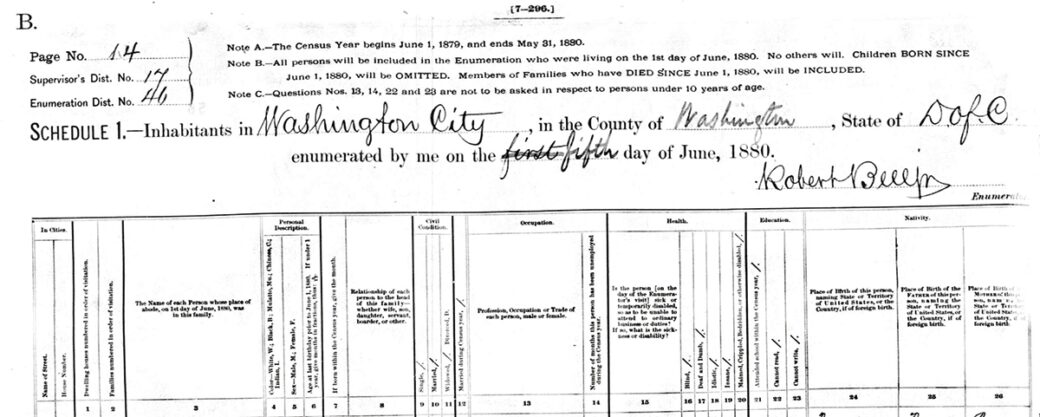 [7-296.]
B.
Page No. 14
Supervisor's Dist. No. 17
Enumeration Dist. No. 46
Note A.—The Census Year begins June 1, 1879, and ends May 31, 1880.
Note B.—All persons will be included in the Enumeration who were living on the 1st day of June, 1880. No others will. Children BORN SINCE
June 1, 1880, will be OMITTED. Members of Families who have DIED SINCE June 1, 1880, will be INCLUDED.
Note C.—Questions Nos. 13, 14, 22 and 23 are not to be asked in respect to persons under 10 years of age.
SCHEDULE 1.—Inhabitants in Washington City, in the County of Washington, State of D of C
enumerated by me on the first fifth day of June, 1880.
Robert
Enumerator
In Cities.
Name of Street.
House Number.
Dwelling houses numbered in order of visitation.
Families numbered in order of visitation.
The Name of each Person whose place of
abode, on 1st day of June, 1880, was
in this family.
Personal
Description.
Color—White, W.; Black, B.; Mulatto, Mu.; Chinese, C.;
Indian, I.
Sex—Male, M.; Female, F.
Age at last birthday prior to June 1, 1880. If under 1
year, give months in fractions, thus:
If born within the Census year, give the month.
Relationship of each
person to the head
of this family—
whether wife, son,
daughter, servant,
boarder, or other.
Civil
Condition.
Single, /.
Married, /.
Widowed, /. Divorced, D.
Married during Census year, /.
Occupation.
Profession, Occupation or Trade of
each person, male or female.
Number of months this person has been unemployed
during the Census year.
Health.
Is the person [on the
day of the Enumera-
tor's visit] sick or
temporarily disabled,
so as to be unable to
attend to ordinary
business or duties?
If so, what is the sick-
ness or disability?
Blind, /.
Deaf and Dumb, /.
Idiotic, /.
Insane, /.
Maimed, Crippled, Bedridden, or otherwise disabled, /.
Education.
Attended school within the Census year, /.
Cannot read, /.
Cannot write, /.
Nativity.
Place of Birth of this person,
naming State or Territory
of United States, or the
Country, if of foreign birth.
Place of Birth of the
FATHER of this person,
naming the
State or Territory of
United States, or
the Country, if of
foreign birth.
Place of Birth of the
MOTHER of this
State or
United States,
the Country, if
foreign birth.
1 2 3 4 5 6 7 8 9 10 11 12 13 14 15 16 17 18 19 20 21 22 23 24 25 26